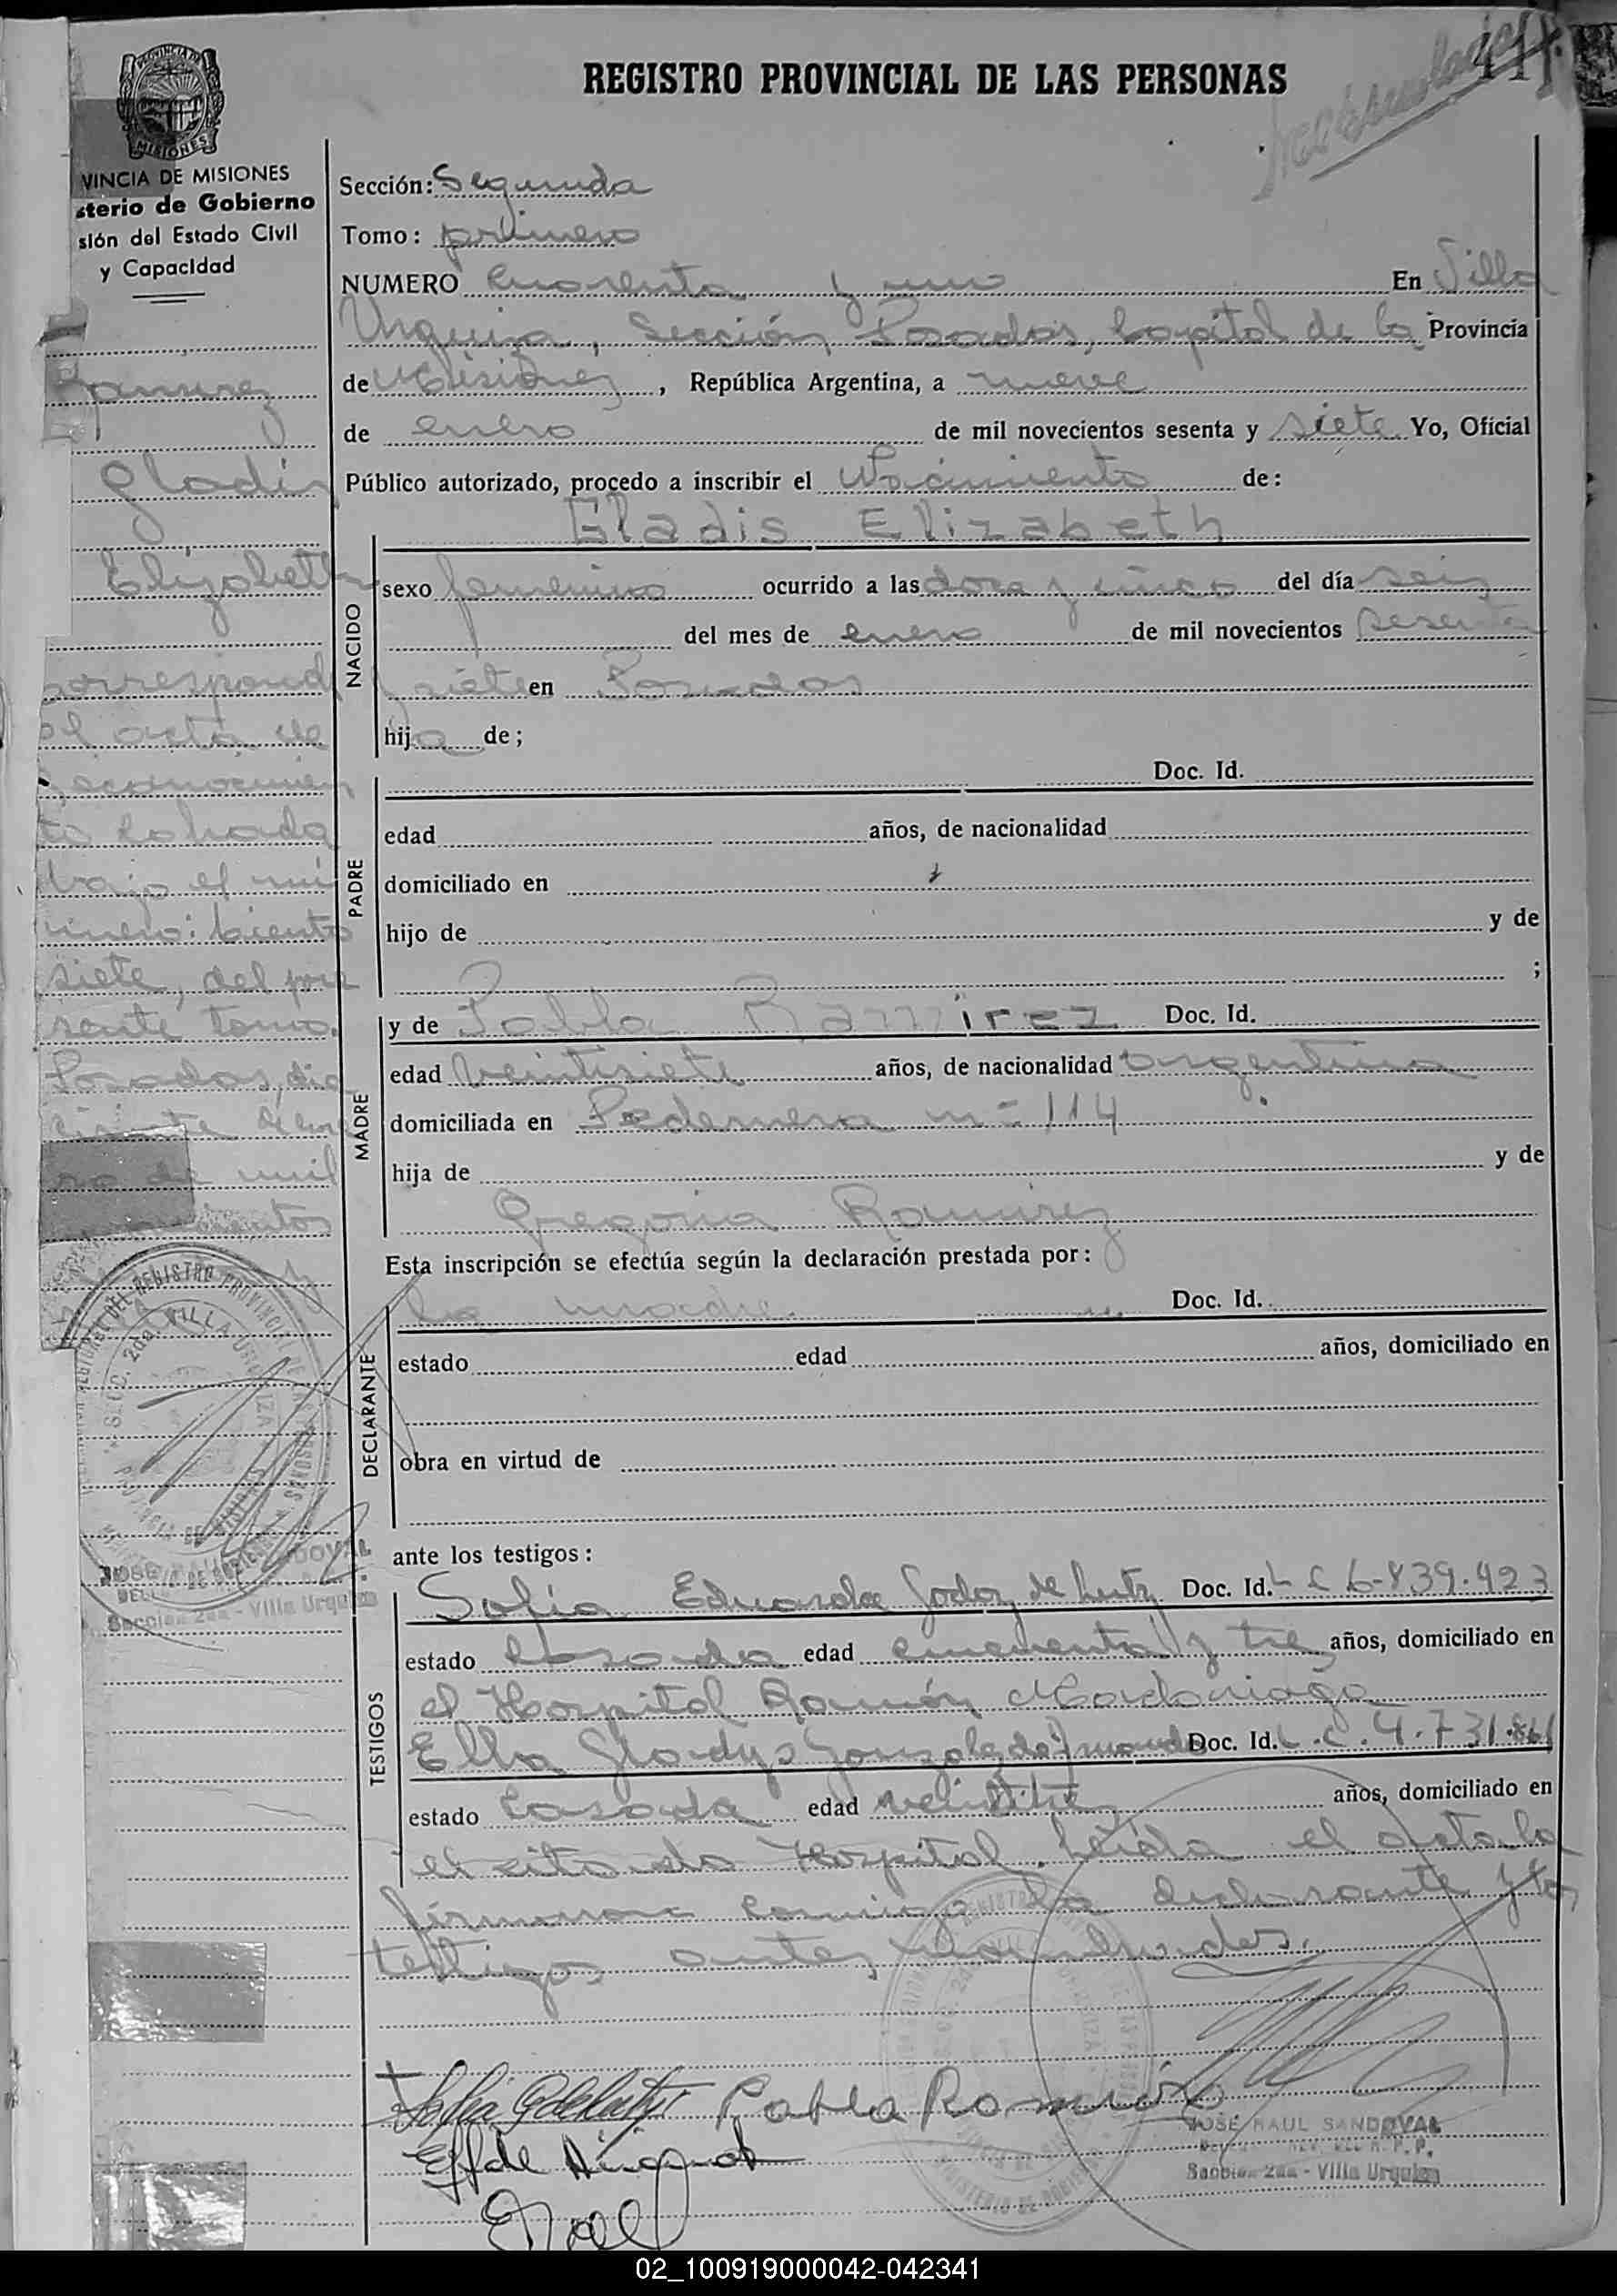 REGISTRO PROVINCIAL DE LAS PERSONAS
MISIONES
VINCIA DE MISIONES
sterio de Gobierno
sión del Estado Civil
y Capacidad
Ramirez
Gladis
Elizabeth
correspond
el acta de
Reconocimien
to labrada
bajo el nú
mero: ciento
siete, del pre
sente tomo.
Posadas,
de mil
Sección: Segunda
Tomo: primero
NUMERO Cuarenta y uno En Villa
Urquiza, Sección Posadas, Capital de la Provincia
de Misiones, República Argentina, a nueve
de enero de mil novecientos sesenta y siete Yo, Oficial
Público autorizado, procedo a inscribir el Nacimiento de:
Gladis Elizabeth
NACIDO
sexo femenino ocurrido a las doce y cinco del día seis
del mes de enero de mil novecientos sesenta
y siete en Posadas
hija de;
PADRE
Doc. Id.
edad años, de nacionalidad
domiciliado en
hijo de y de
;
MADRE
y de Pabla Ramirez Doc. Id.
edad veintisiete años, de nacionalidad argentina
domiciliada en Pedernera nº 114
hija de y de
Gregoria Ramirez
Esta inscripción se efectúa según la declaración prestada por:
DECLARANTE
la madre. Doc. Id.
estado edad años, domiciliado en
obra en virtud de
ante los testigos:
TESTIGOS
Sofía Eduarda Godoy de Doc. Id. L C 6.839.423
estado casada edad cincuenta y tres años, domiciliado en
el Hospital Ramón Madariaga
Elba Gladys Gonzalez de Doc. Id. L.C. 4.731.861
estado casada edad veintitres años, domiciliado en
el citado Hospital. Leída el acta la
firman conmigo la declarante y los
testigos antes nombrados.
Pabla Ramirez
JOSE RAUL SANDOVAL
Sección 2da - Villa Urquiza
02_100919000042-042341